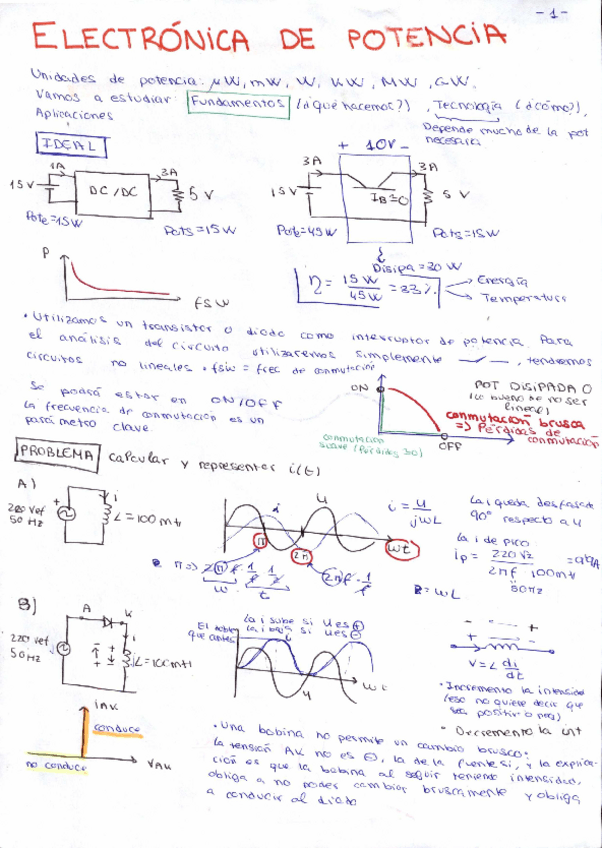 - 1 -
ELECTRÓNICA DE POTENCIA
Unidades de potencia: μW, mW, W, kW, MW, GW.
Vamos a estudiar: Fundamentos (¿qué hacemos?), Tecnología (¿cómo?),
Aplicaciones
Depende mucho de la pot
necesaria
IDEAL
+ 10V -
1A
3A
3A
3A
15V
DC/DC
5 V
15V
IB=0
5 V
Pote=15W
Pots=15W
Pote=45W
Pots=15W
Disipa=30 W
P
fsw
η = 15W / 45W = 33%
Energía
Temperatura
• Utilizamos un transistor o diodo como interruptor de potencia. Para
el análisis del circuito utilizaremos simplemente , tendremos
circuitos no lineales • fsw = frec de conmutación
Se podrá estar en ON/OFF
la frecuencia de conmutación es un
parámetro clave.
ON
OFF
POT DISIPADA 0
(lo bueno de no ser
lineal)
conmutación brusca
=> Pérdidas de
conmutación
conmutación
suave (Pérdidas≥0)
PROBLEMA calcular y representar i(t)
A)
220 Vef
50 Hz
i
L=100mH
i
u
π
2π
wt
i = u / jωL
La i queda desfasada
90° respecto a u
la i de pico
ip = 220√2 / 2πf·100mH = 9'9A
50Hz
π => 2πf·1/f·1/2
w
t
2πf·1/f
Z=ωL
B)
A
K
220 Vef
50Hz
i
L=100mH
La i sube si u es +
la i baja si u es -
que antes
u
wt
- +
+ -
V = L di/dt
• Incremento la intensidad
(eso no quiere decir que
sea positiv o neg)
- Decremento la int
iAK
conduce
no conduce
VAK
• Una bobina no permite un cambio brusco.
la tensión AK no es ⊖, la de la fuente si, y la explica-
ción es que la bobina al seguir teniendo intensidad,
obliga a no poder cambiar bruscamente y obliga
a conducir al diodo